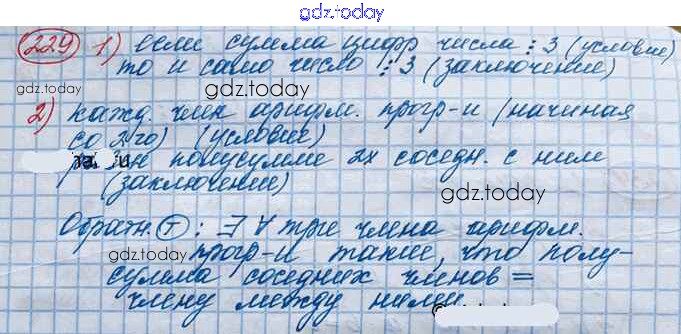 gdz.today
229 1) если сумма цифр числа ⋮ 3 (условие)
то и само число ⋮ 3 (заключение)
gdz.today
gdz.today
2) кажд. член арифм. прогр-и (начиная
со 2го) (условие)
полусумме 2х соседн. с ним
(заключение)
gdz.today
Обратн. Т : ∃ ∀ три члена арифм.
gdz.today
прогр-и такие, что полу-
сумма соседних членов =
члену между ними